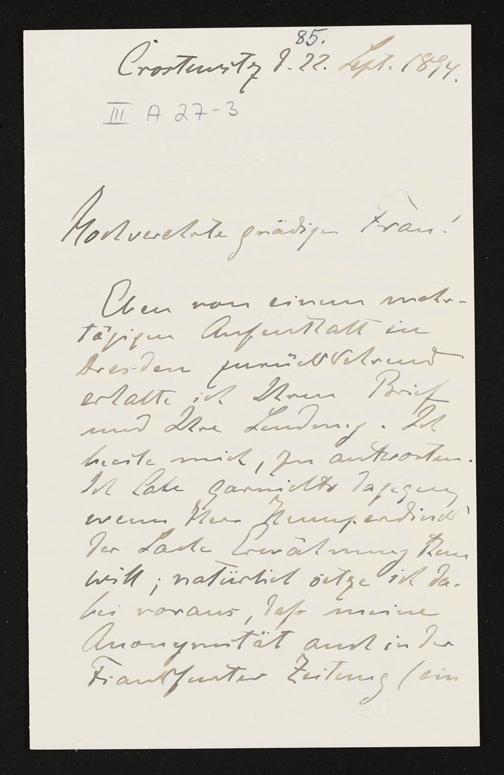 85.
Crostewitz d. 22. Sept. 1894.
III A 27-3
Hochverehrte gnädige Frau!
Eben von einem mehr-
tägigen Aufenthalt in
Dresden zurückkehrend
erhalte ich Ihren Brief
und Ihre Sendung. Ich
beeile mich, zu antworten.
Ich habe garnichts dagegen,
wenn Herr Humperdinck
der Sache Erwähnung thun
will; natürlich setze ich da-
bei voraus, daß meine
Anonymität auch in der
Frankfurter Zeitung (ein